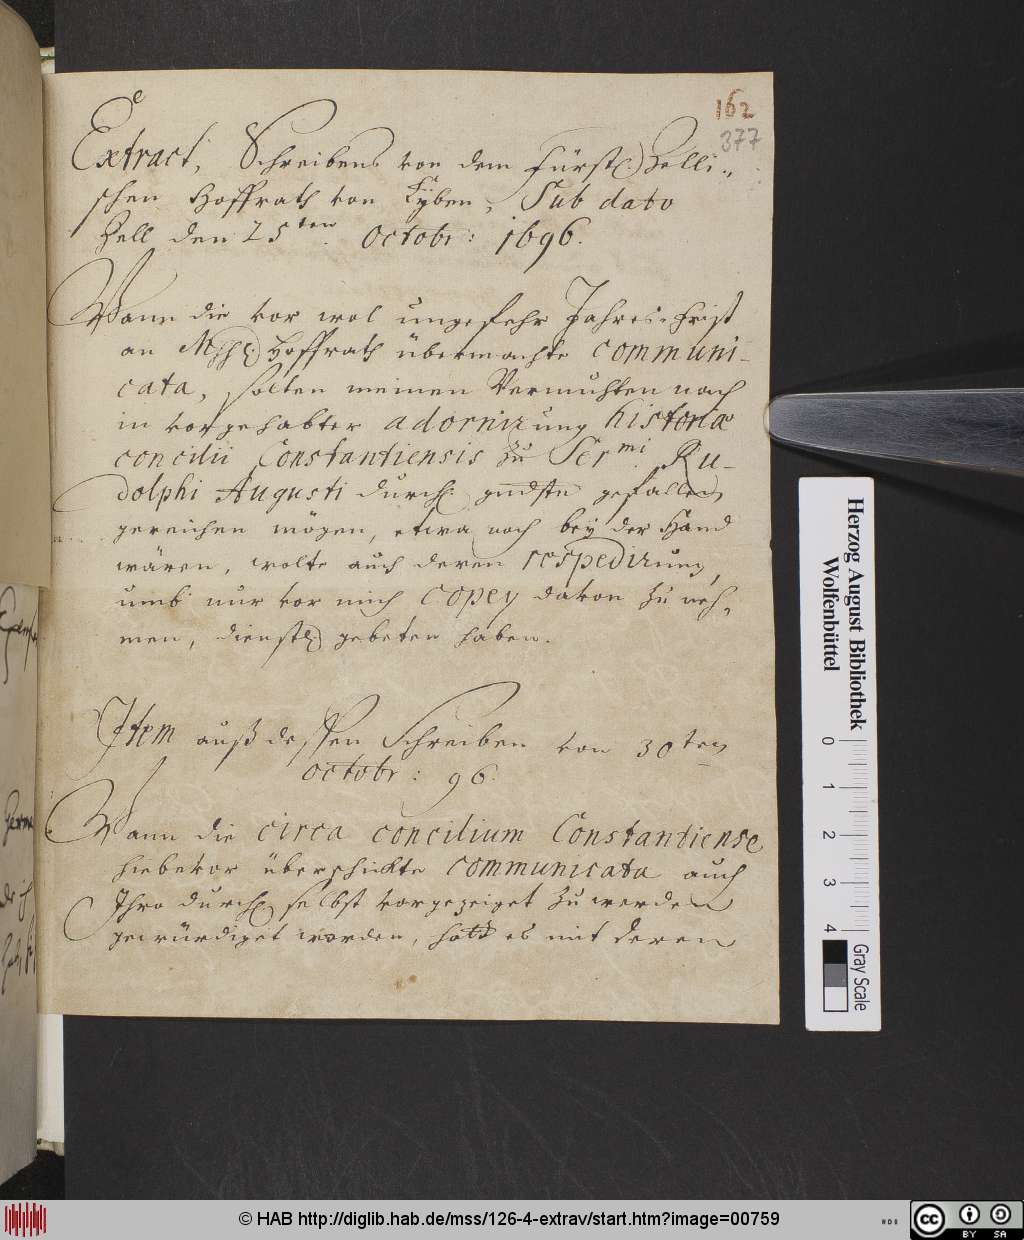 162
377
Extract, Schreibens von dem Fürstl: Zelli-
schen Hoffrath von Fyben, Sub dato
Zell den 25ten Octobr: 1696.
Wann die vor wol ungefehr Jahres-frist
an Hoffrath übermachte communi-
cata, solten meinen Vermuhten nach
in vorgehabter adornirung historiae
concilii Constantiensis zu Sermi Ru-
dolphi Augusti durchl. gndste gefallen
gereichen mögen, etwa noch bey der Hand
wären, wolte auch deren respedirung,
umb nur vor mich copey davon zu neh-
men, dienstl. gebeten haben.
Item auß dessen Schreiben von 30ten
Octobr: 96.
Wann die circa concilium Constantiense
hiebevor überschickte communicata auch
Ihro durchl. selbst vorgezeiget zu werden
gewürdiget worden, hatt es mit deren
Herzog August Bibliothek
Wolfenbüttel
0 1 2 3 4
Gray Scale
© HAB http://diglib.hab.de/mss/126-4-extrav/start.htm?image=00759
cc BY SA